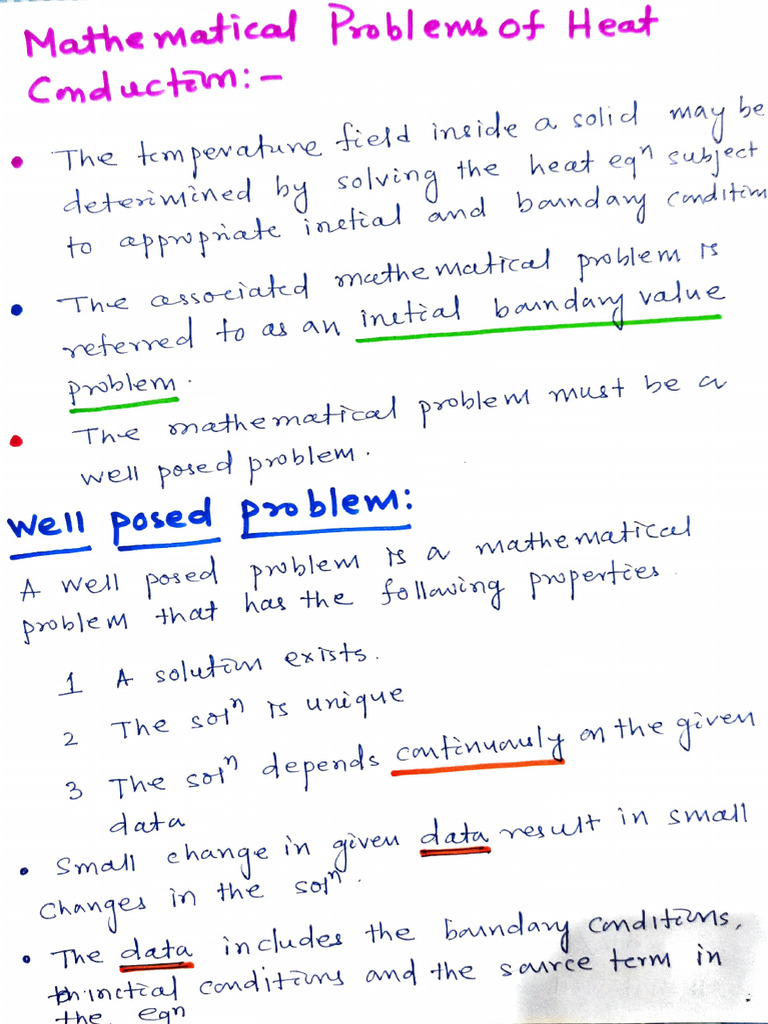 Mathematical Problems of Heat
Conduction:-
• The temperature field inside a solid may be
determined by solving the heat eqⁿ subject
to appropriate inetial and boundary condition
• The associated mathematical problem is
referred to as an inetial boundary value
problem.
• The mathematical problem must be a
well posed problem.
Well posed problem:
A well posed problem is a mathematical
problem that has the following properties.
1 A solution exists.
2 The solⁿ is unique
3 The solⁿ depends continuously on the given
data
• Small change in given data result in small
changes in the solⁿ.
• The data includes the boundary conditions,
inetial conditions and the source term in
the eqn